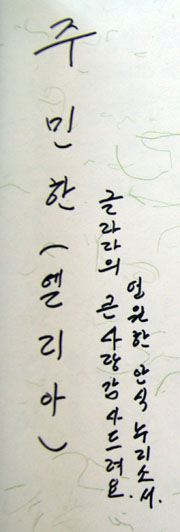 주민한(엘리아)
글라라의 큰사랑감사드려요.
영원한 안식 누리소서.